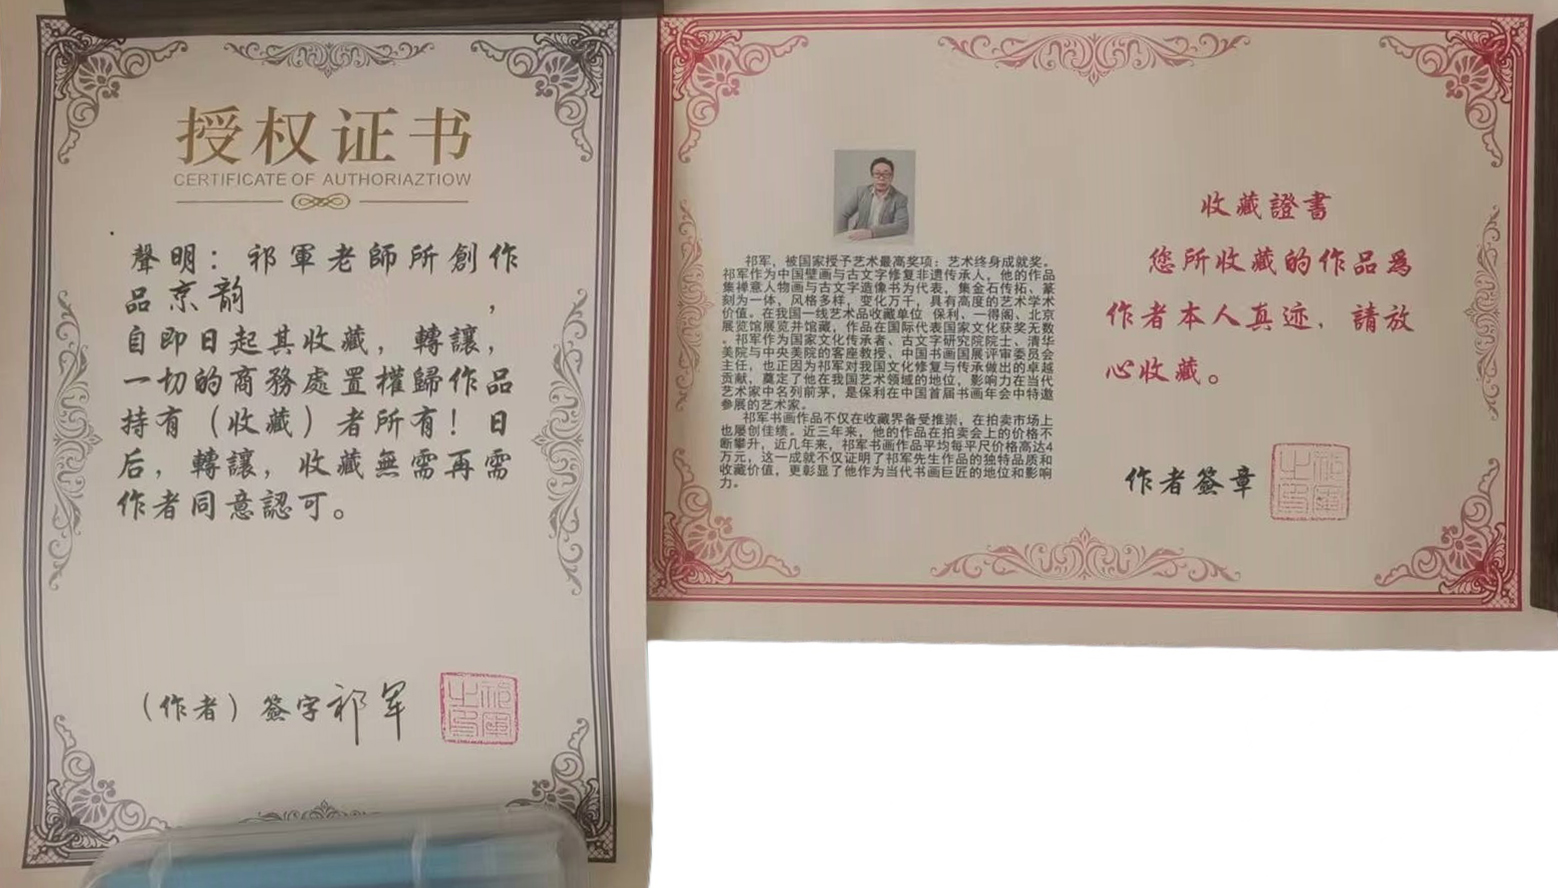 授权证书
CERTIFICATE OF AUTHORIAZTIOW
聲明：祁軍老師所創作
品京韵，
自即日起其收藏，轉讓，
一切的商務處置權歸作品
持有（收藏）者所有！日
后，轉讓，收藏無需再需
作者同意認可。
（作者）簽字祁军
祁軍之印
祁军，被国家授予艺术最高奖项：艺术终身成就奖。
祁军作为中国壁画与古文字修复非遗传承人，他的作品
集禅意人物画与古文字造像书为代表，集金石传拓、篆
刻为一体，风格多样，变化万千，具有高度的艺术学术
价值。在我国一线艺术品收藏单位 保利、一得阁、北京
展览馆展览并馆藏，作品在国际代表国家文化获奖无数
。祁军作为国家文化传承者、古文字研究院院士、清华
美院与中央美院的客座教授、中国书画国展评审委员会
主任，也正因为祁军对我国文化修复与传承做出的卓越
贡献，奠定了他在我国艺术领域的地位，影响力在当代
艺术家中名列前茅，是保利在中国首届书画年会中特邀
参展的艺术家。
祁军书画作品不仅在收藏界备受推崇，在拍卖市场上
也屡创佳绩。近三年来，他的作品在拍卖会上的价格不
断攀升，近几年来，祁军书画作品平均每平尺价格高达4
万元，这一成就不仅证明了祁军先生作品的独特品质和
收藏价值，更彰显了他作为当代书画巨匠的地位和影响
力。
收藏證書
您所收藏的作品爲
作者本人真迹，請放
心收藏。
作者簽章
祁軍之印